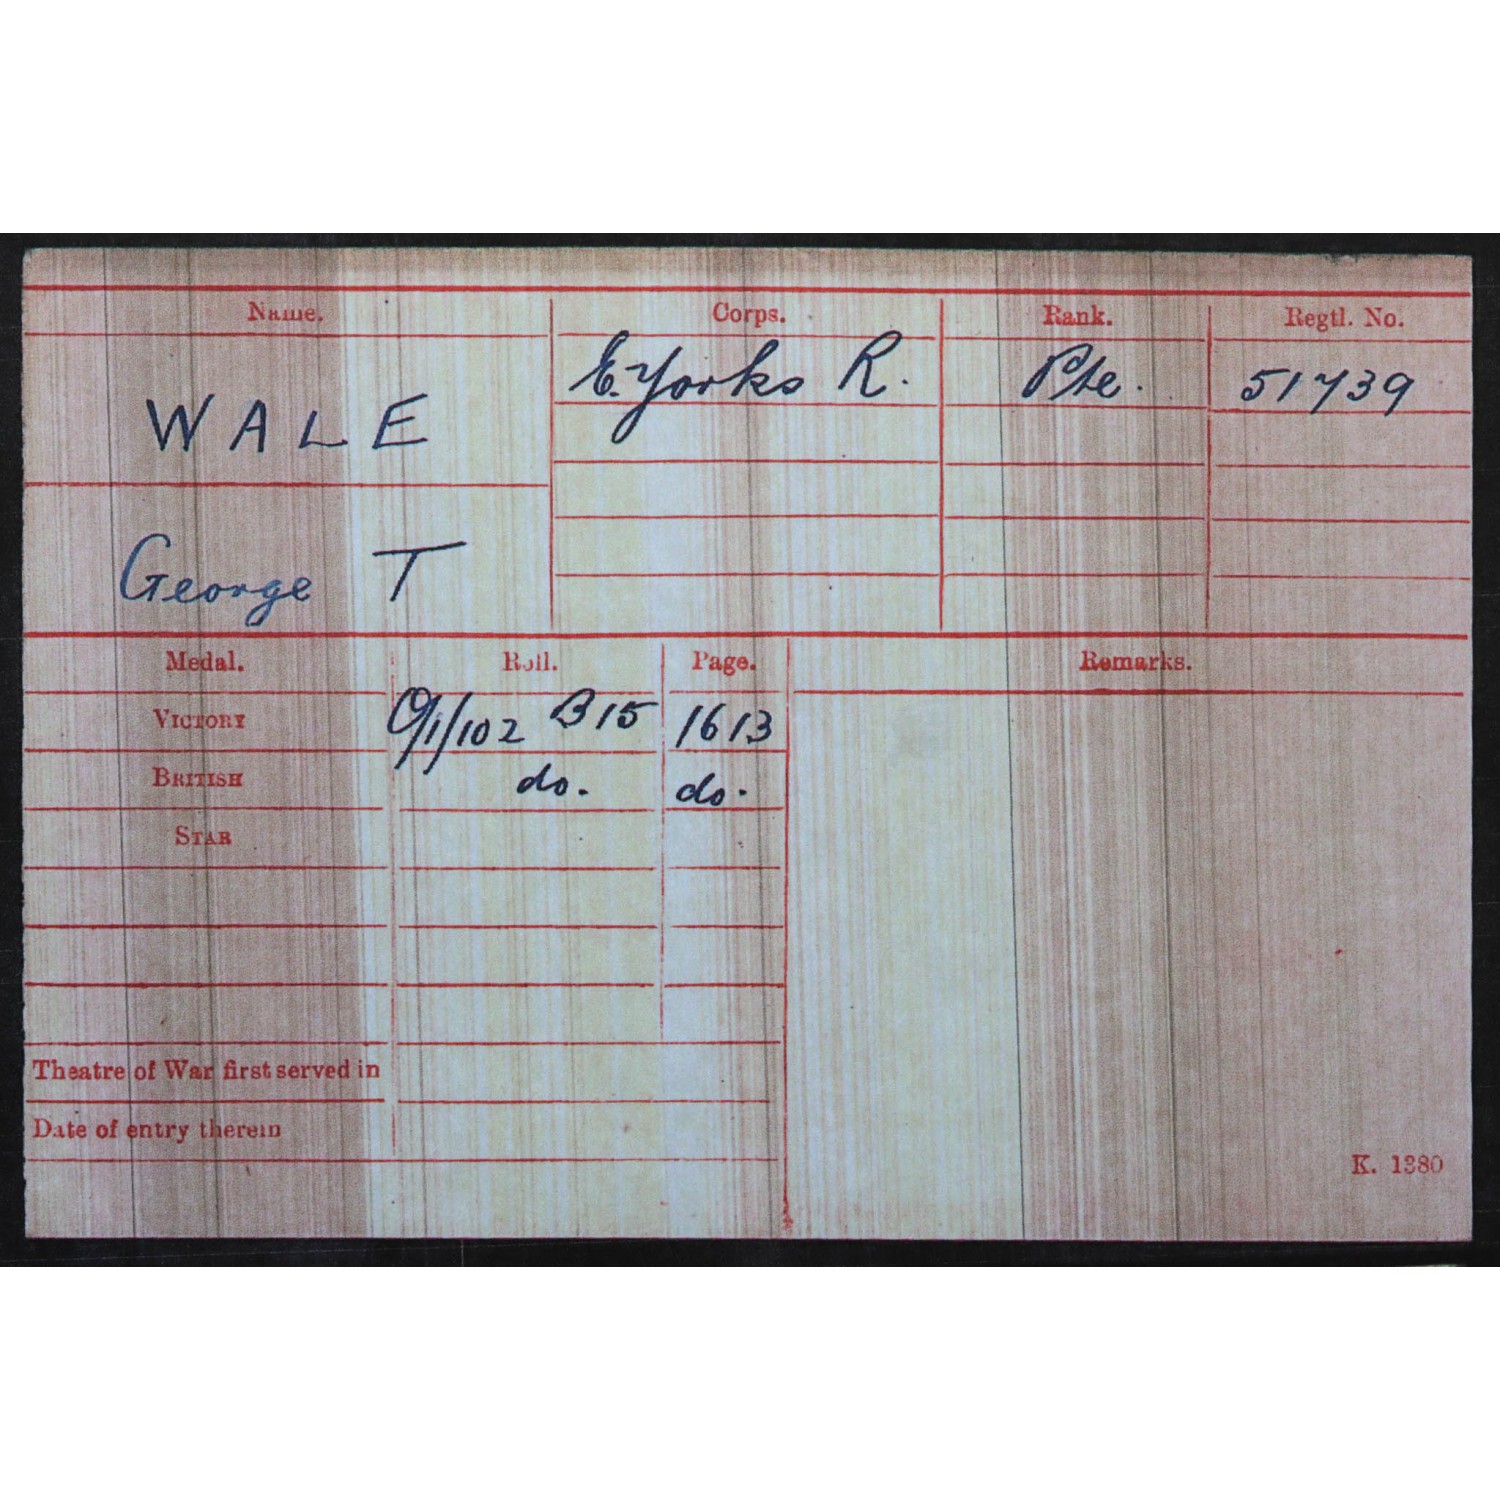 Name. Corps. Rank. Regtl. No.
WALE E. Yorks R. Pte. 51739
George T
Medal. Roll. Page. Remarks.
VICTORY O/1/102 B15 1613
BRITISH do. do.
STAR
Theatre of War first served in
Date of entry therein
K. 1380